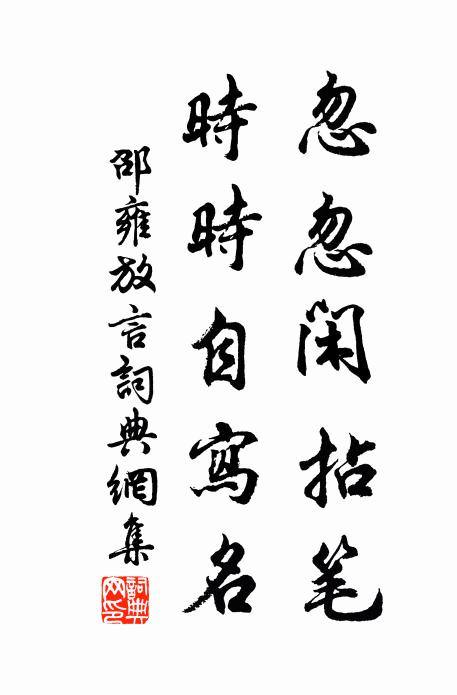 忽忽閑拈笔
時時自寫名
邵雍放言詞典網集
詞典网印